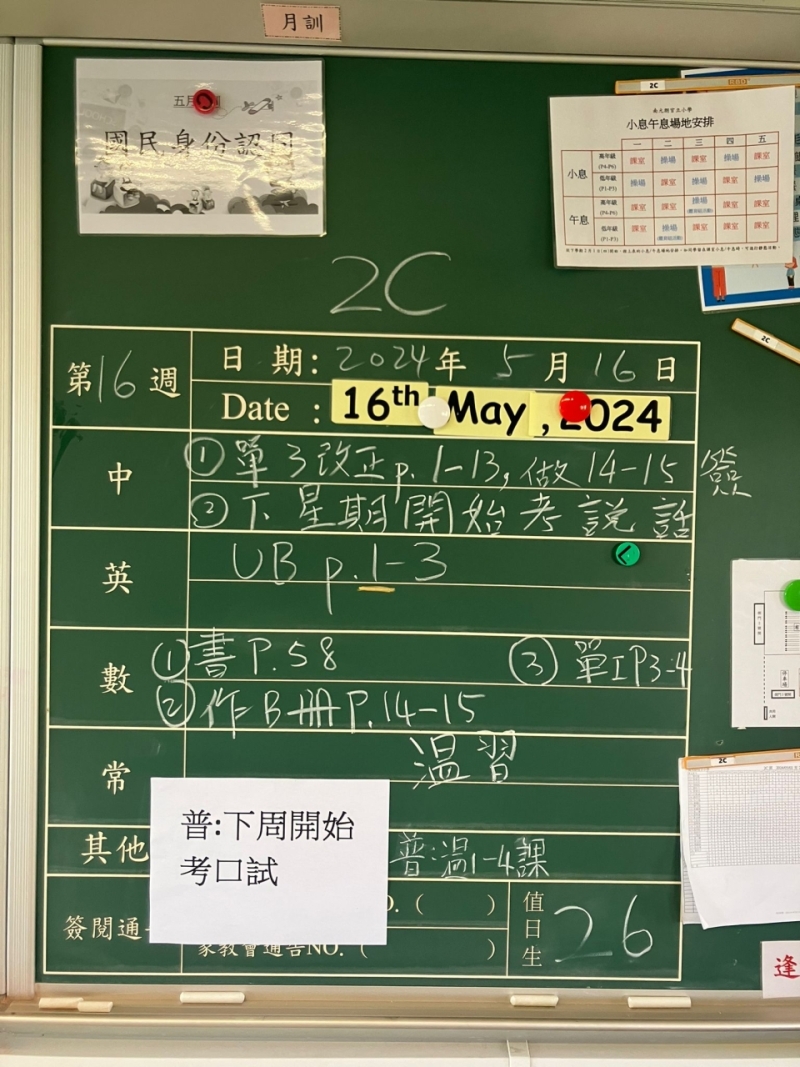 月訓
國民身份認同
2C
小息午息場地安排
一 二 三 四 五
小息
高年級 (P4-P6) 課室 操場 課室 操場 課室
低年級 (P1-P3) 操場 課室 操場 課室 操場
午息
高年級 (P4-P6) 課室 課室 操場 課室 課室
低年級 (P1-P3) 課室 操場 課室 課室 課室
2C
2C
第16週
日期: 2024年 5月 16日
Date : 16th May , 2024
中
① 單3改正p.1-13, 做14-15 簽
② 下星期開始考說話
英
UB p.1-3
數
① 書P.58
③ 單1P3-4
② 作B冊P.14-15
常
溫習
其他
普:下周開始
考口試
普:溫1-4課
簽閱通
O. ( )
家教會通告NO. ( )
值日生
26
2C
逢